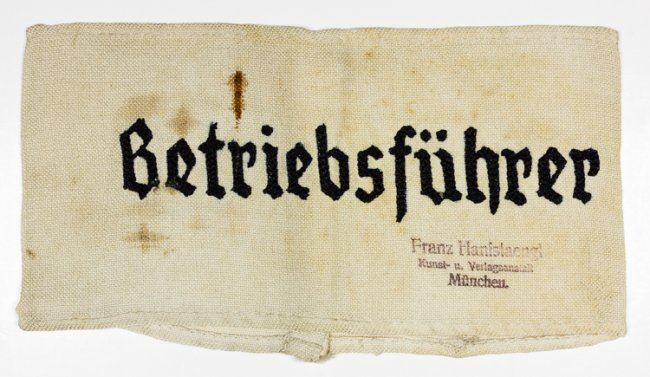 Betriebsführer
Franz Hanfstaengl
Kunst- u. Verlagsanstalt
München.